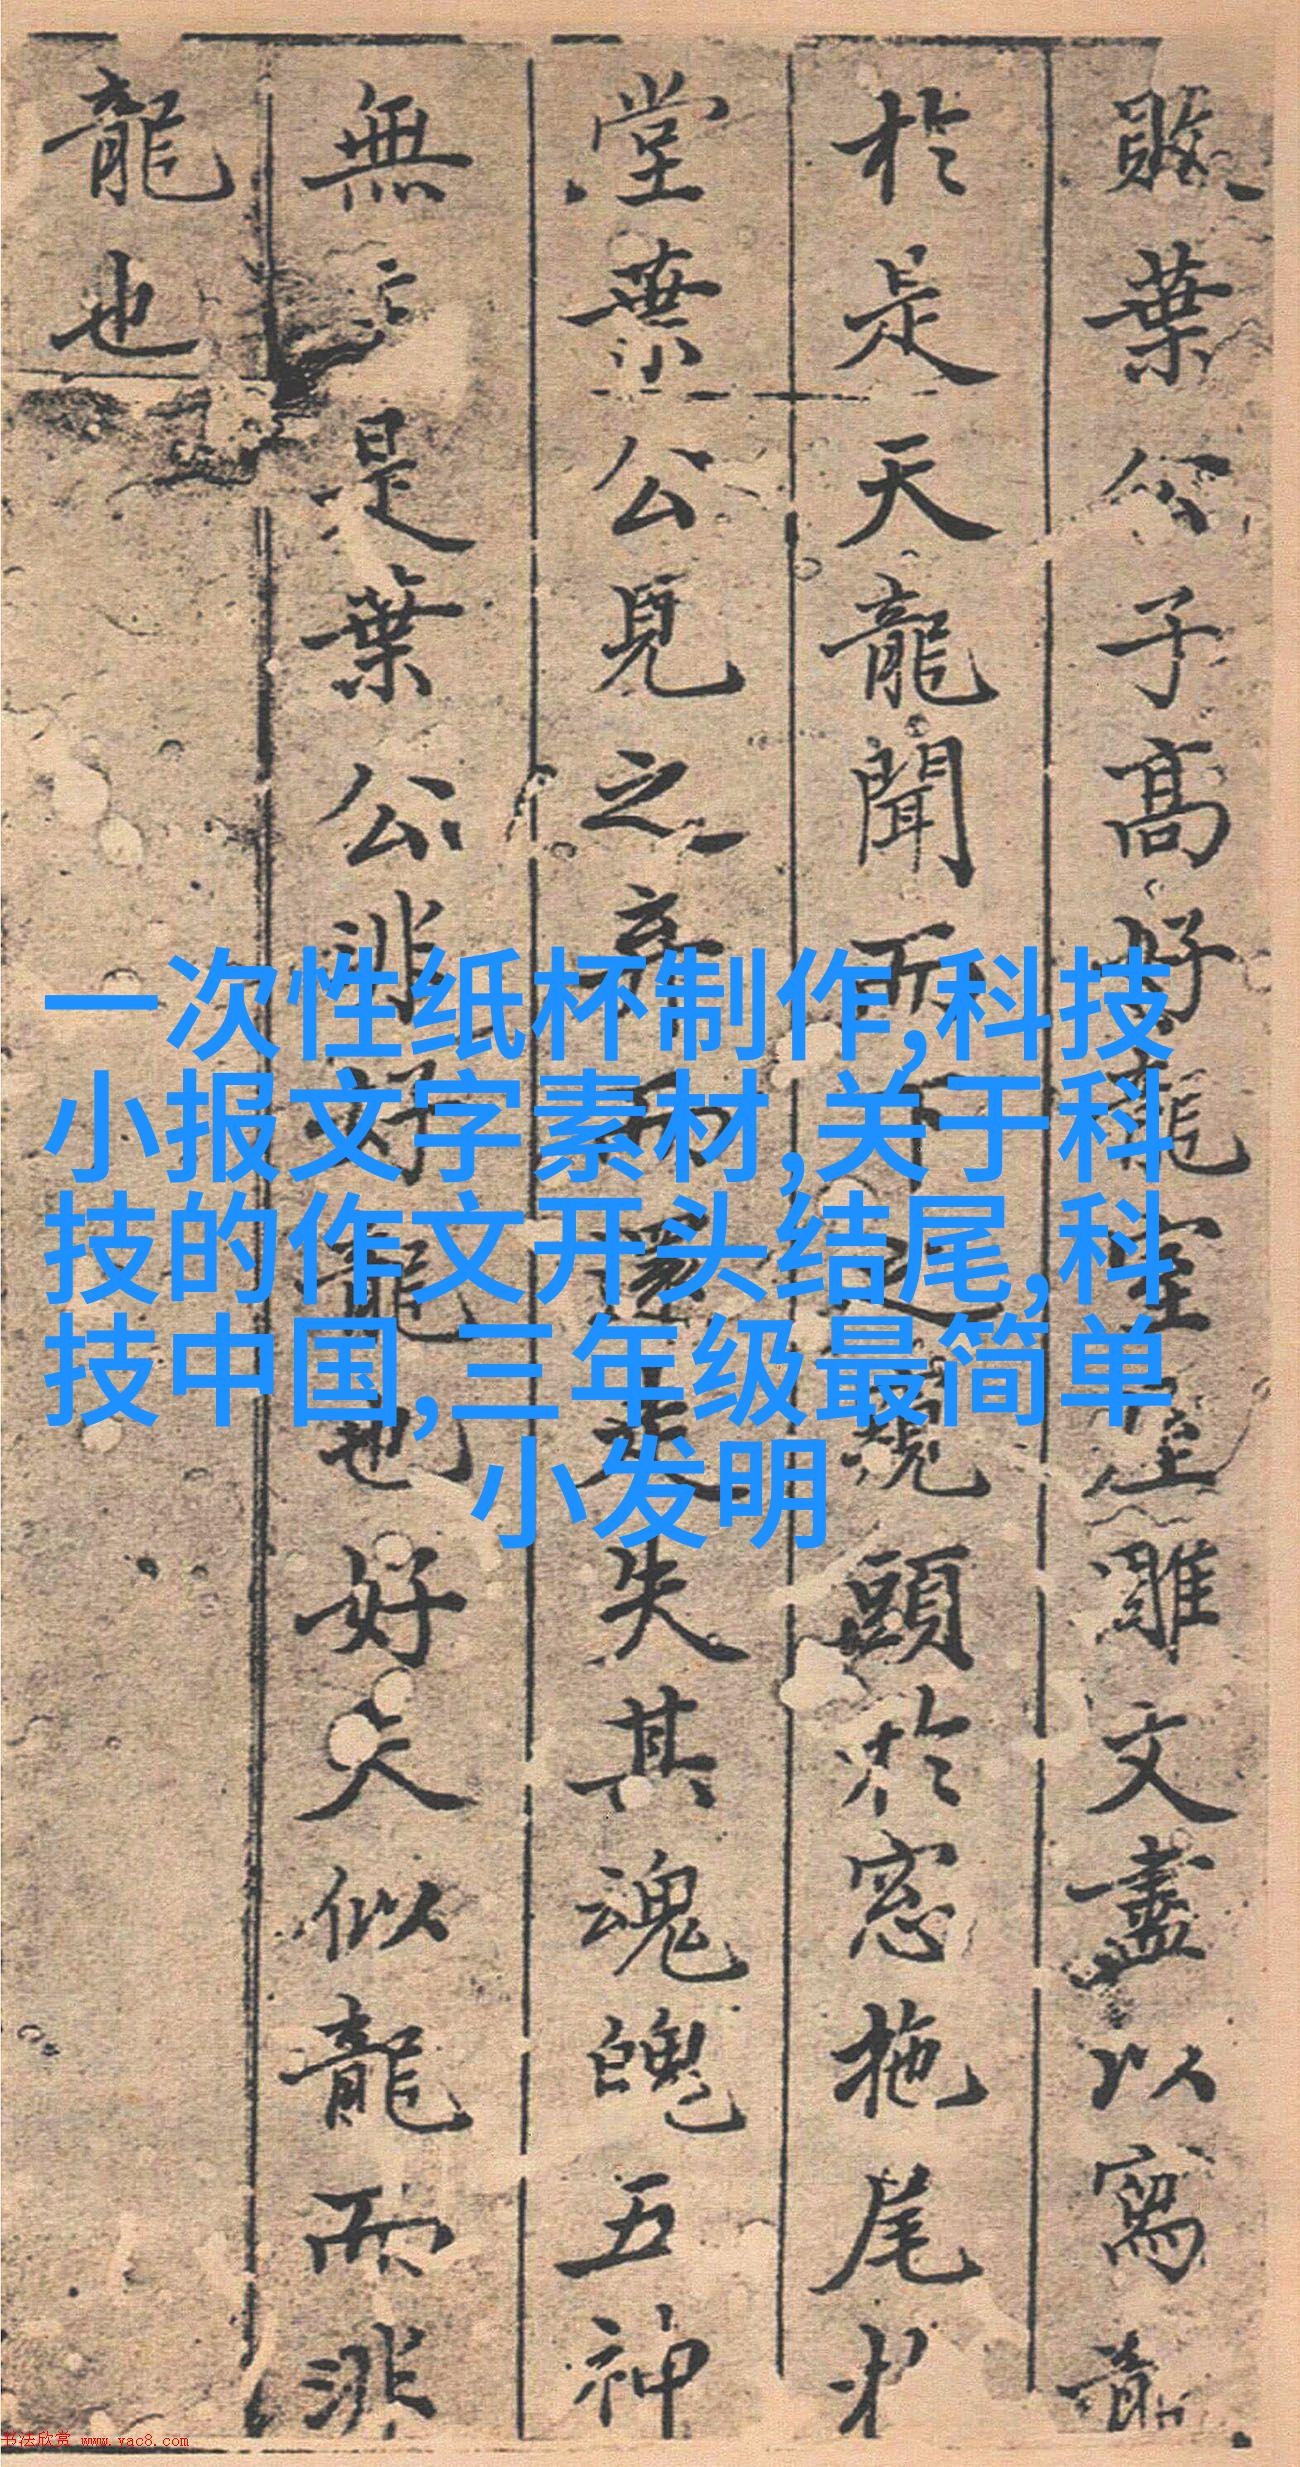 敗葉公子高好龍室屋雕文盡以寫龍
於是天龍聞而下之窺頭於窓拖尾於
堂葉公見之弃而還走失其魂魄五神
無主是葉公非好龍也好夫似龍而非
龍也
一次性纸杯制作,科技
小报文字素材,关于科
技的作文开头结尾,科
技中国,三年级最简单
小发明
书法欣赏 www.yac8.com